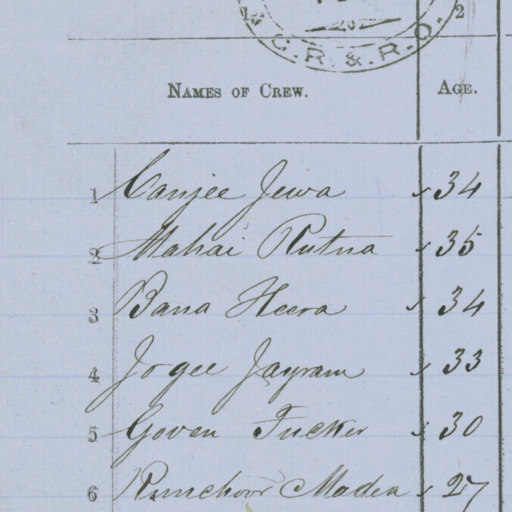 C. R. & R. O.
NAMES OF CREW. AGE.
1 Canjee Jewa 34
2 Mahai Rutna 35
3 Bana Heera 34
4 Jogee Jayram 33
5 Goven Tucker 30
6 Runchoor Madea 27